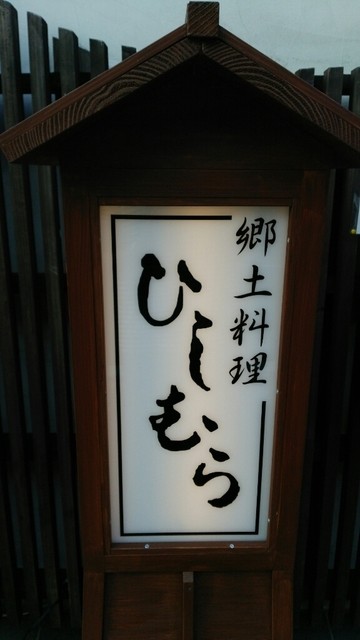 郷土料理
ひしむら